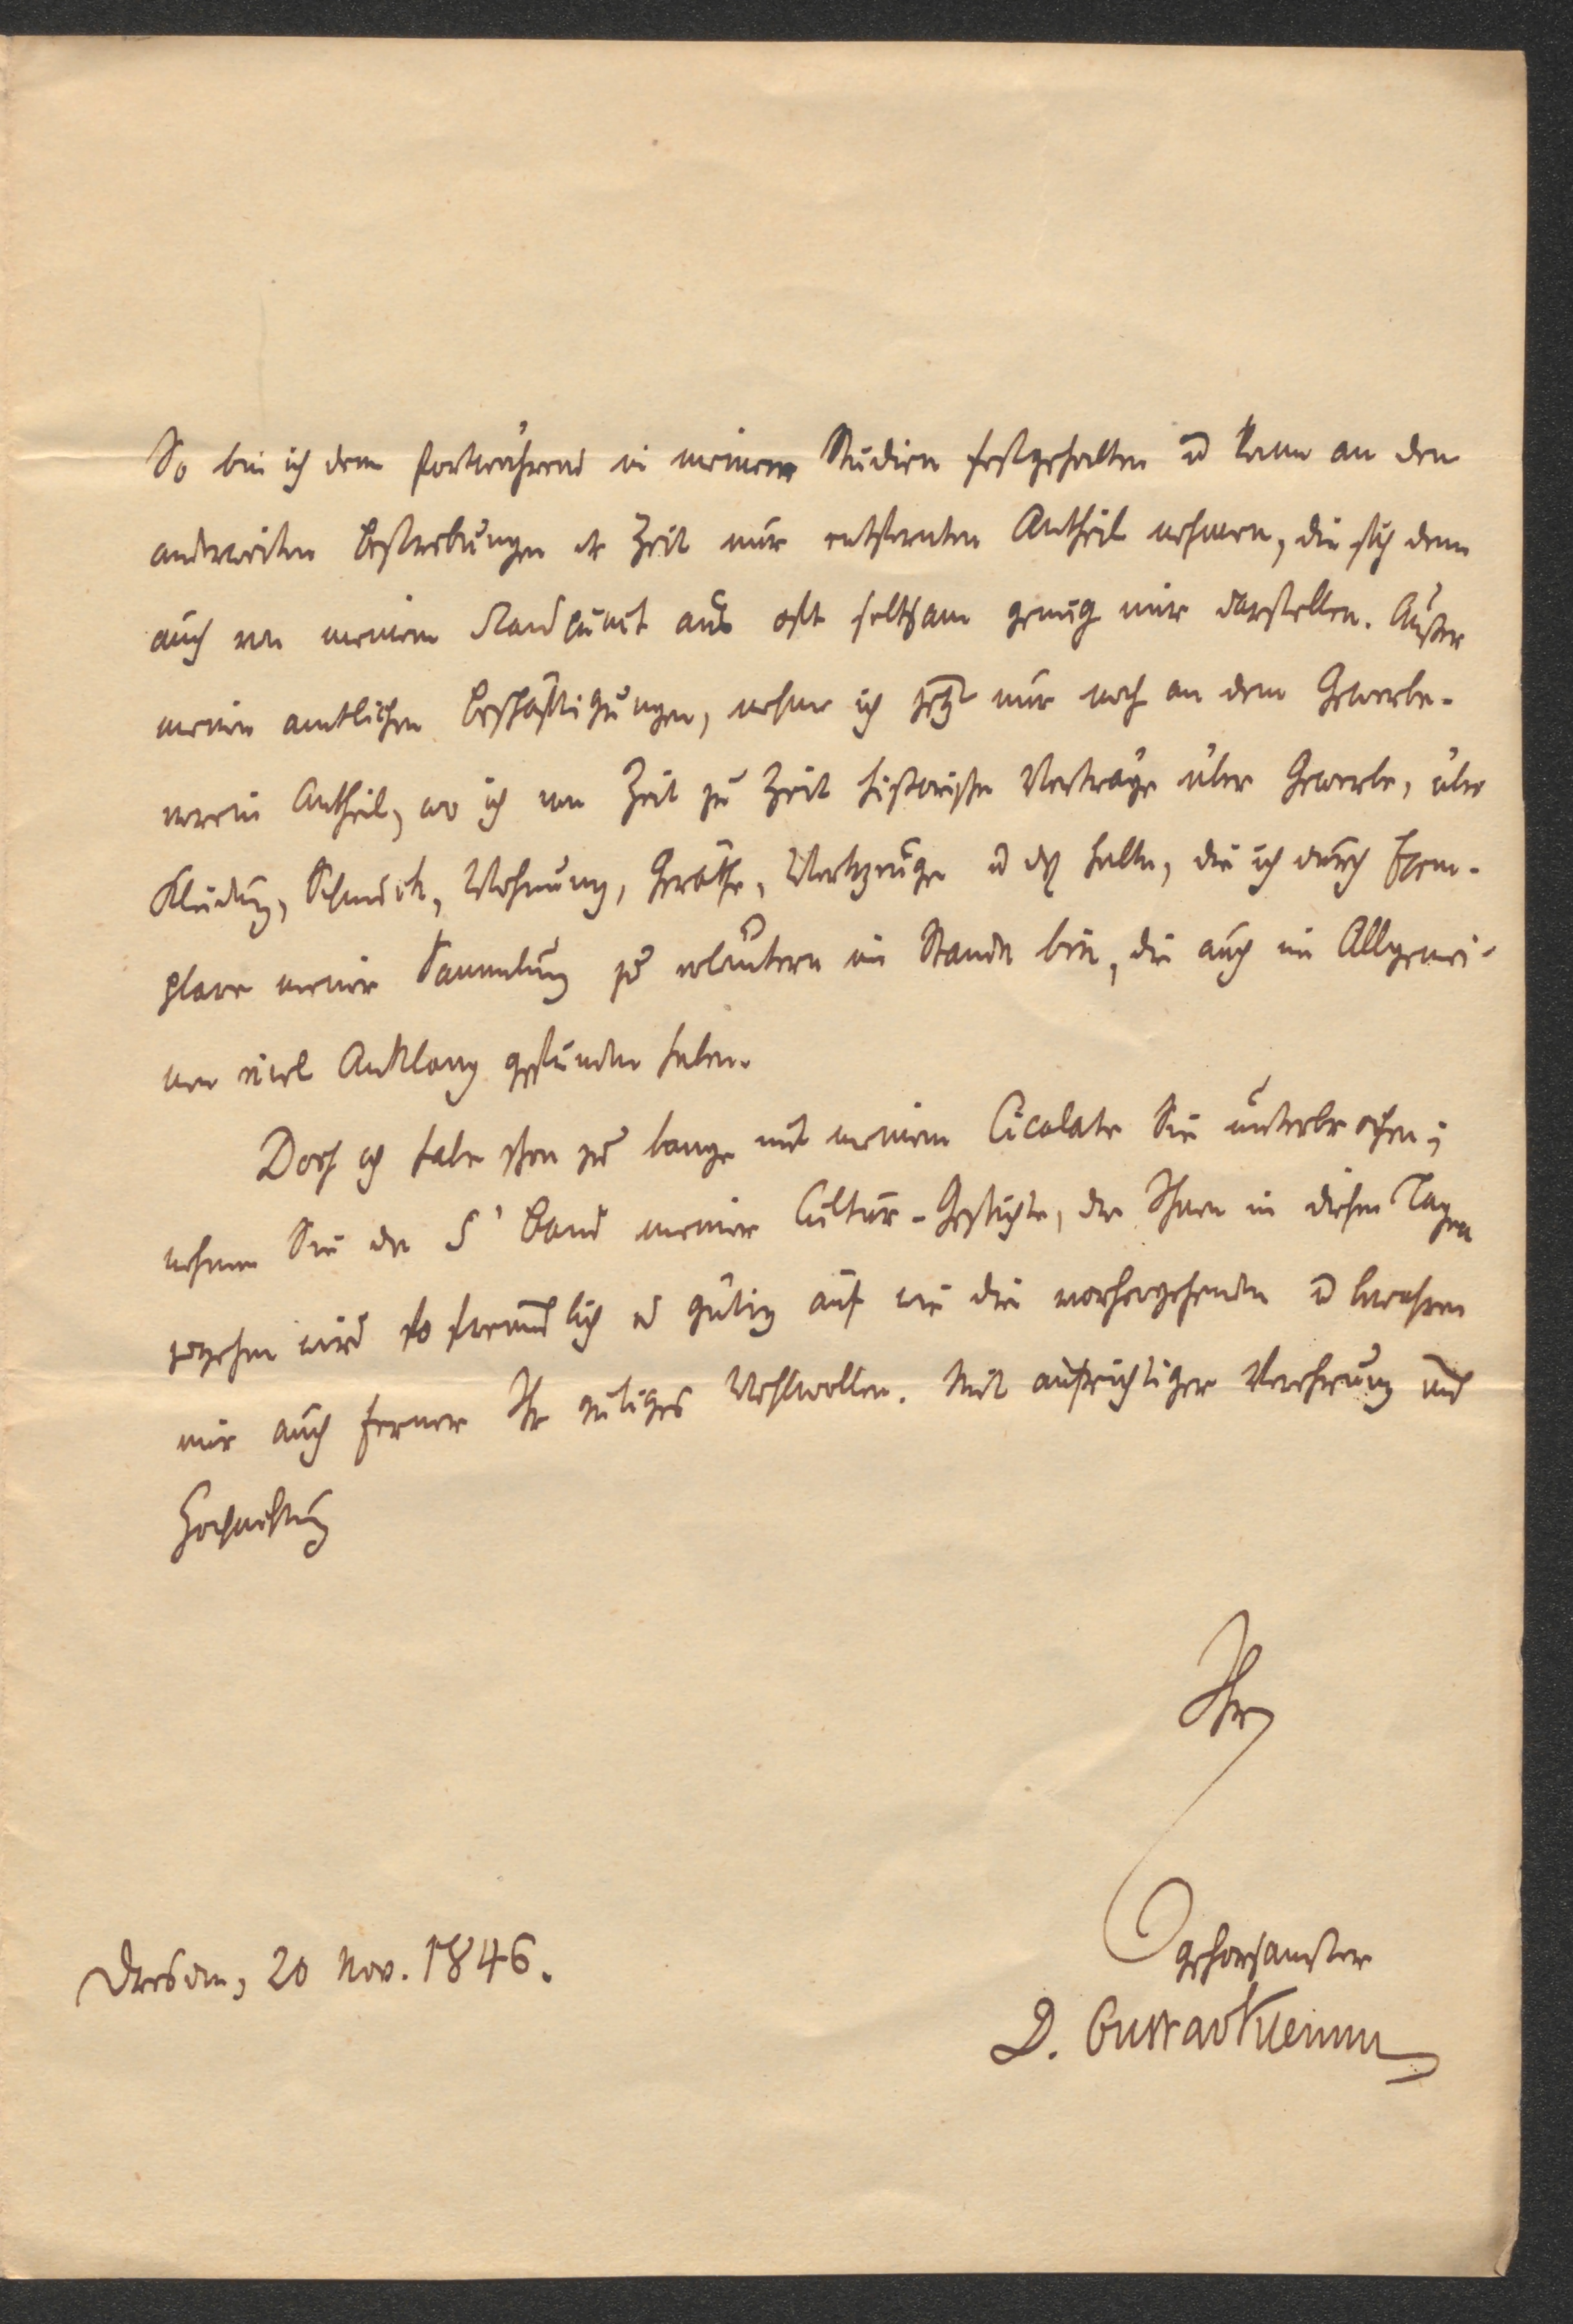 So bin ich denn fortwährend in meinen Studien festgehalten u kann an den
anderweiten Bestrebungen der Zeit nur entfernten Antheil nehmen, die sich denn
auch von meinem Standpunct aus oft seltsam genug mir darstellen. Außer
meinen amtlichen Beschäftigungen, nehme ich jetzt nur noch an dem Gewerbe-
verein Antheil, wo ich von Zeit zu Zeit historische Vorträge über Gewerbe, über
Kleidung, Schmuck, Wohnung, Geräthe, Werkzeuge u dgl halte, die ich durch Exem-
plare meiner Sammlung zu erläutern im Stande bin, die auch im Allgemei-
nen viel Anklang gefunden haben.
Doch ich habe schon zu lange mit meinem Cicalate Sie unterbrochen;
nehmen Sie den 5' Band meiner Cultur-Geschichte, der Ihnen in diesen Tagen
zugehen wird so freundlich u gütig auf wie die vorhergehenden u bewahren
mir auch ferner Ihr gütiges Wohlwollen. Mit aufrichtiger Verehrung und
Hochachtung
Ihr
gehorsamster
Dresden, 20 Nov. 1846.
D. Gustav Klemm